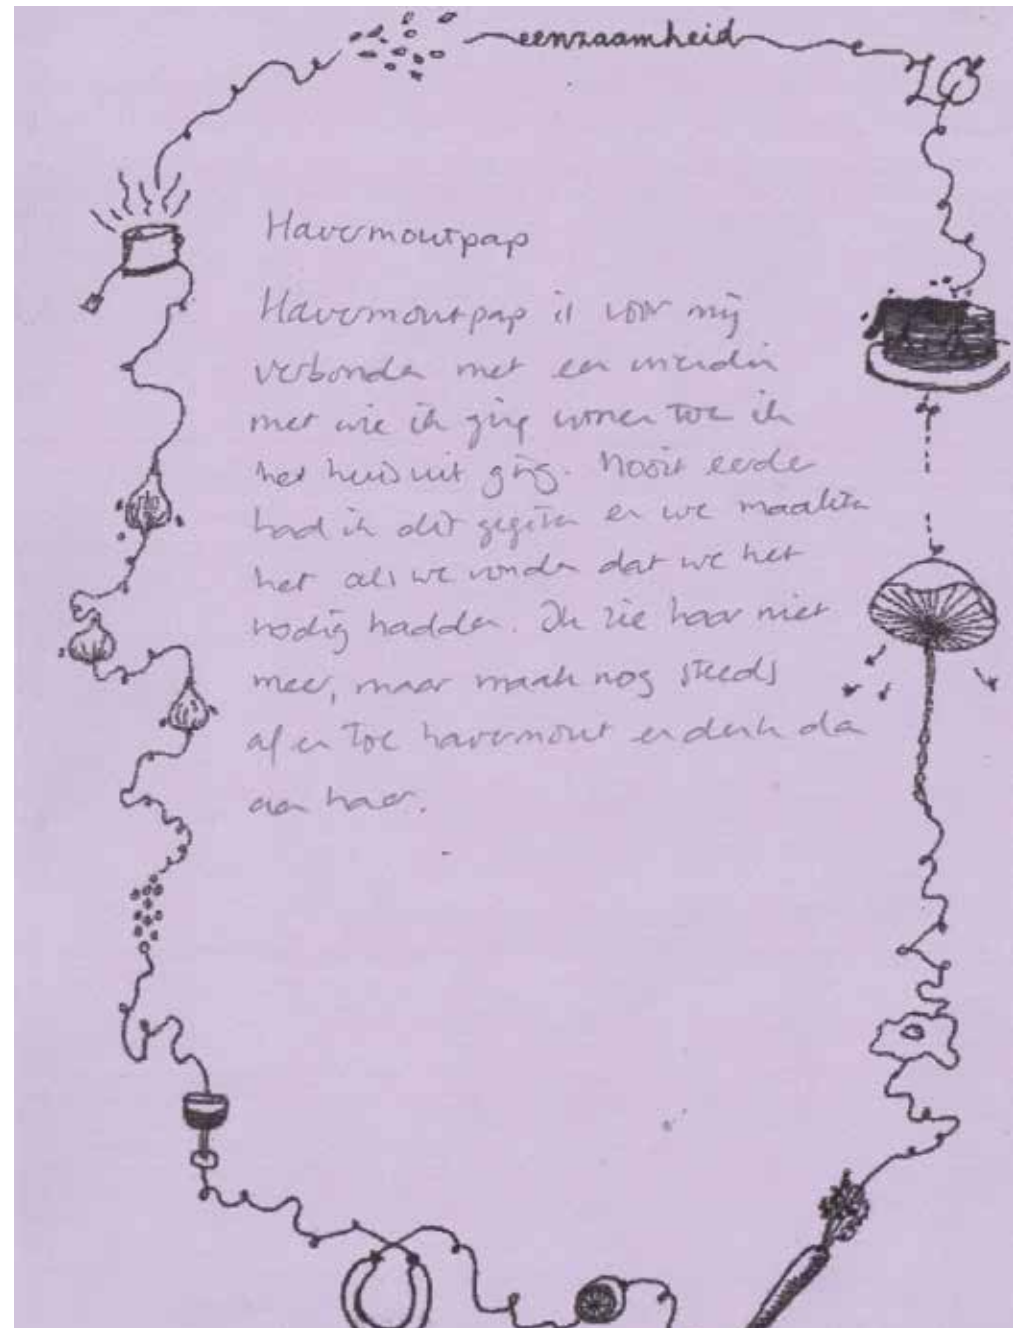 eenzaamheid
16
Havermoutpap
Havermoutpap is voor mij
verbonden met een vriendin
met wie ik ging wonen toe ik
het huis uit ging. Nooit eerder
had ik dit gegeten en we maakten
het als we vonden dat we het
nodig hadden. Ik zie haar niet
meer, maar maak nog steeds
af en toe havermout en denk dan
aan haar.